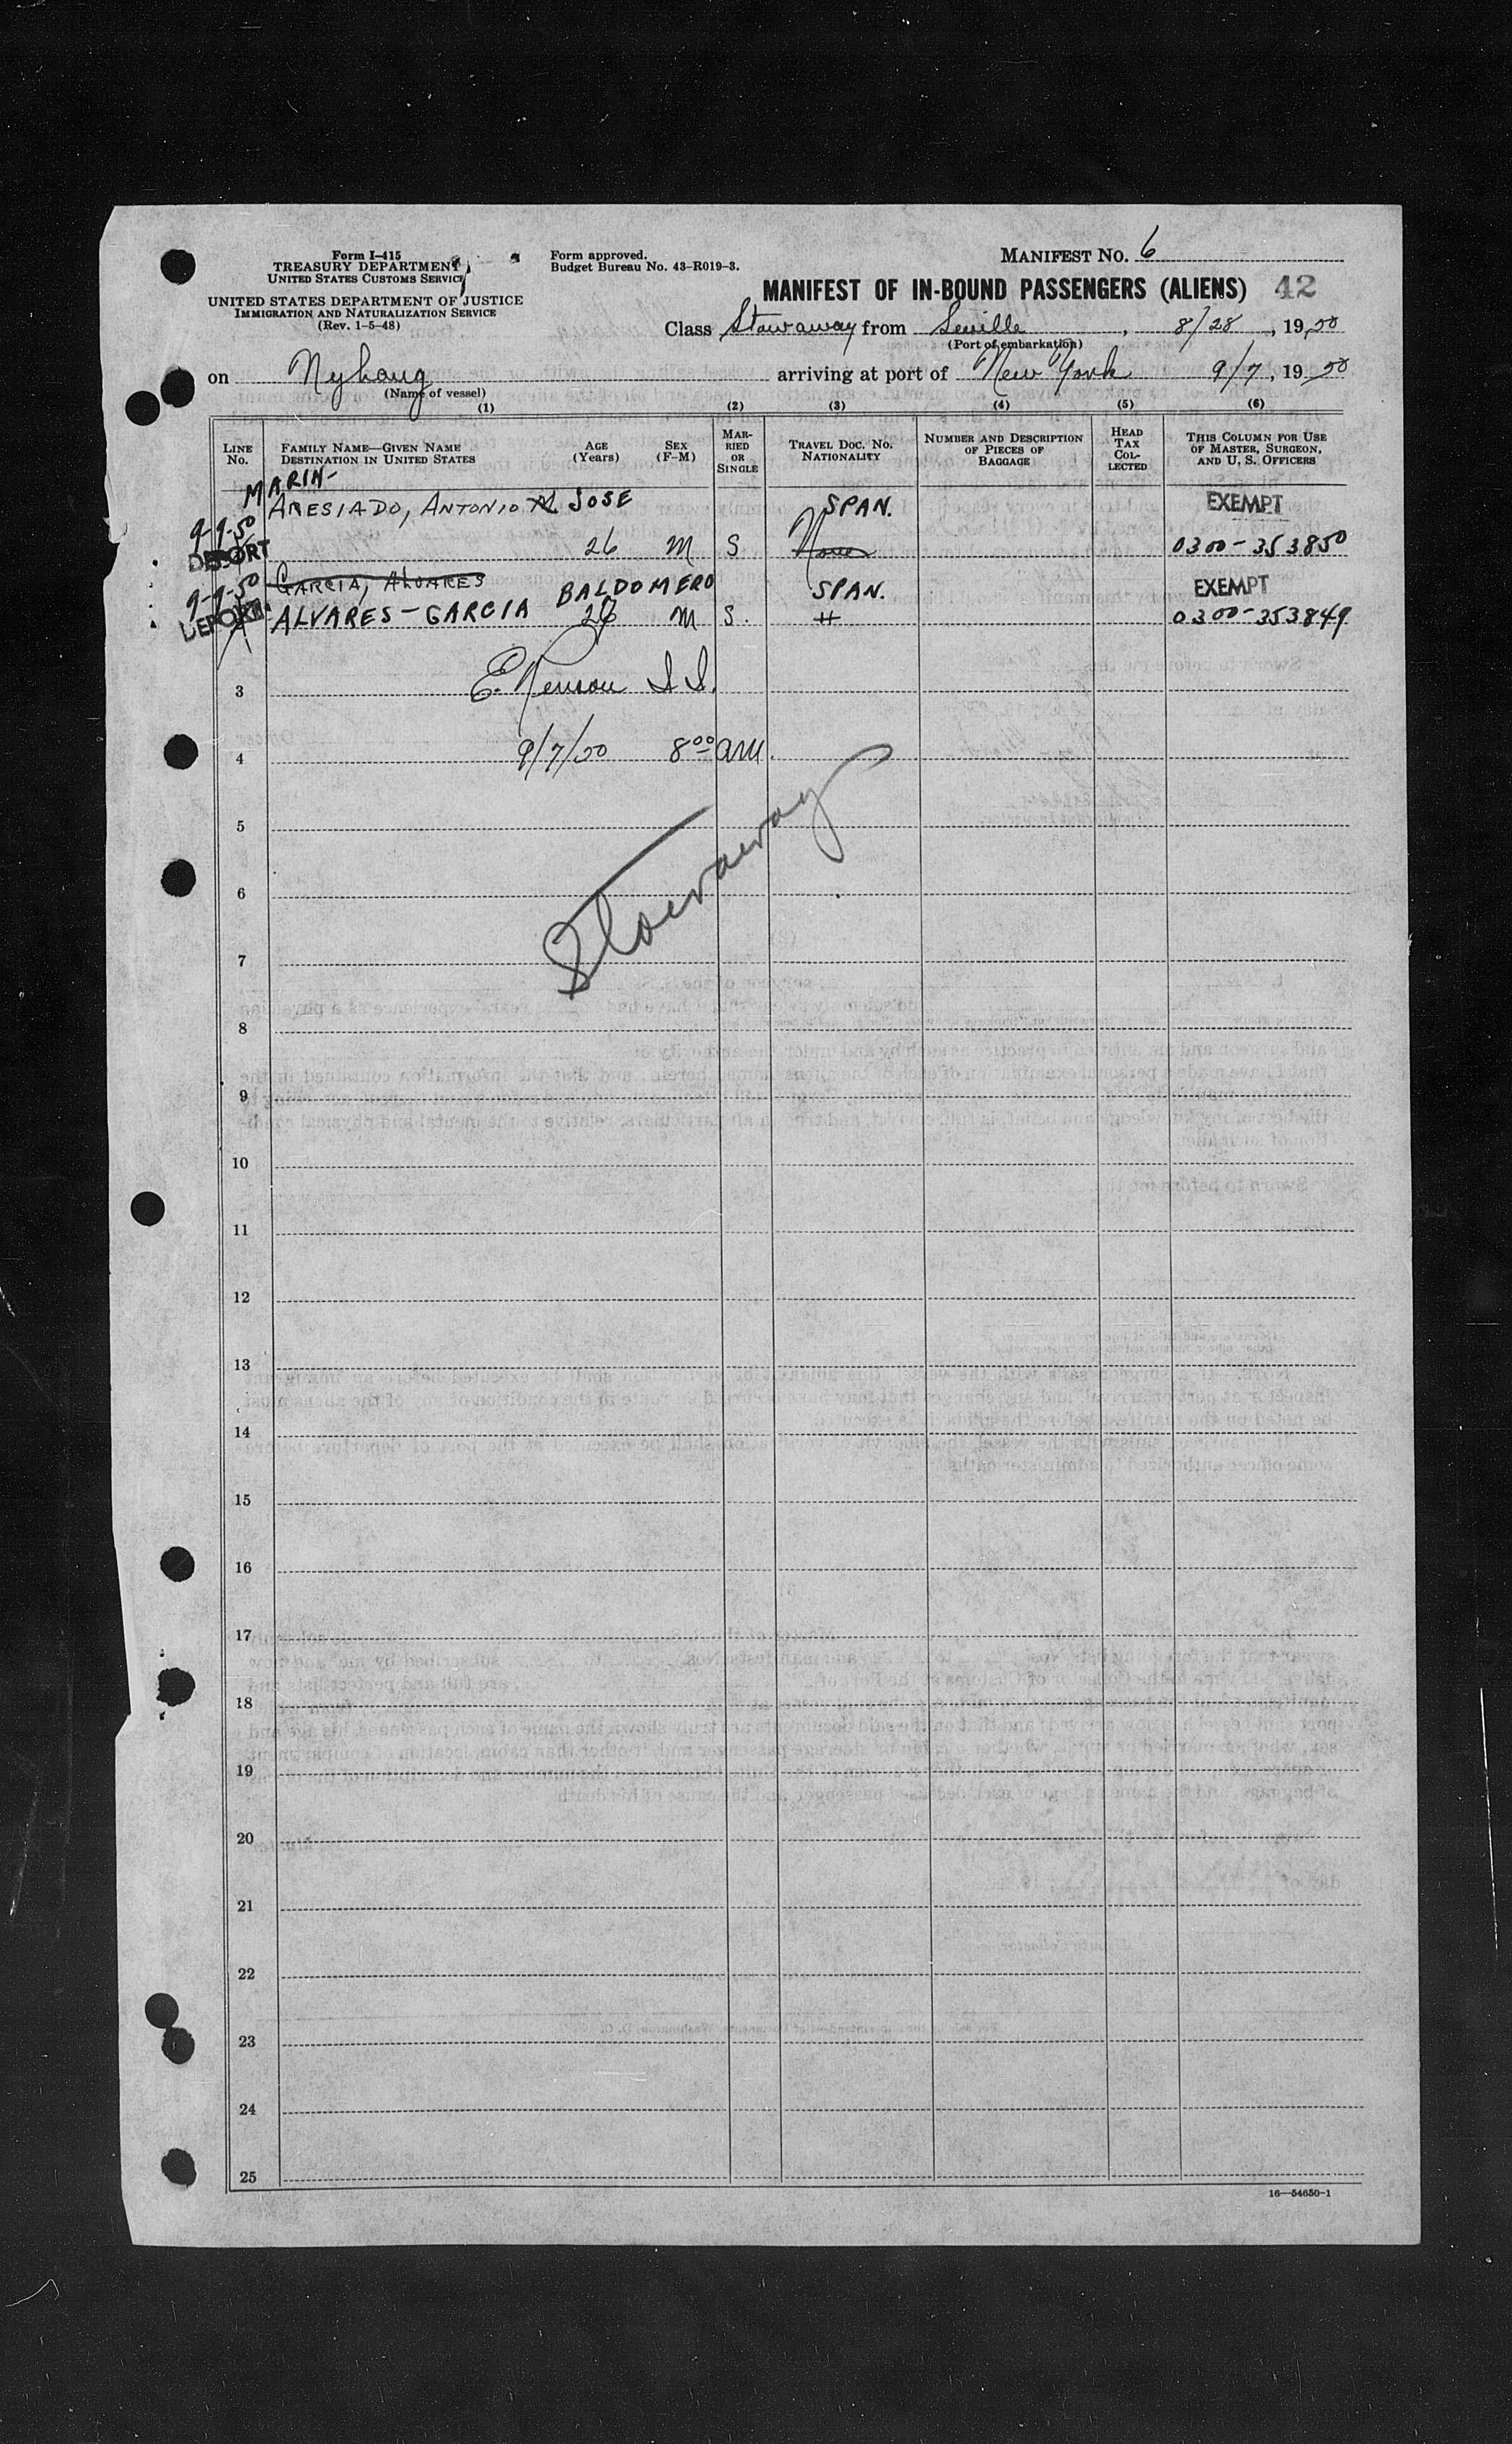 Form I-415
TREASURY DEPARTMENT
UNITED STATES CUSTOMS SERVICE
UNITED STATES DEPARTMENT OF JUSTICE
IMMIGRATION AND NATURALIZATION SERVICE
(Rev. 1-5-48)
Form approved.
Budget Bureau No. 43-R019-3.
MANIFEST NO. 6
MANIFEST OF IN-BOUND PASSENGERS (ALIENS) 42
Class Stowaway from Seville, 8/28, 1950
(Port of embarkation)
on Nyhaug arriving at port of New York 9/7, 1950
(Name of vessel)
(1) (2) (3) (4) (5) (6)
LINE No. FAMILY NAME—GIVEN NAME DESTINATION IN UNITED STATES AGE (Years) SEX (F-M) MARRIED OR SINGLE TRAVEL DOC. NO. NATIONALITY NUMBER AND DESCRIPTION OF PIECES OF BAGGAGE HEAD TAX COLLECTED THIS COLUMN FOR USE OF MASTER, SURGEON, AND U. S. OFFICERS
MARIN-
ARESIADO, ANTONIO JOSE SPAN. EXEMPT
9-9-50
DEPORT 26 M S None 0300-353850
9-9-50 GARCIA, ALVARES BALDOMERO SPAN. EXEMPT
DEPORT ALVARES-GARCIA M S. 0300-353849
3 E. S.S.
4 9/7/50 8 00 AM.
Stowaway
5
6
7
8
9
10
11
12
13
14
15
16
17
18
19
20
21
22
23
24
25
16—54650-1